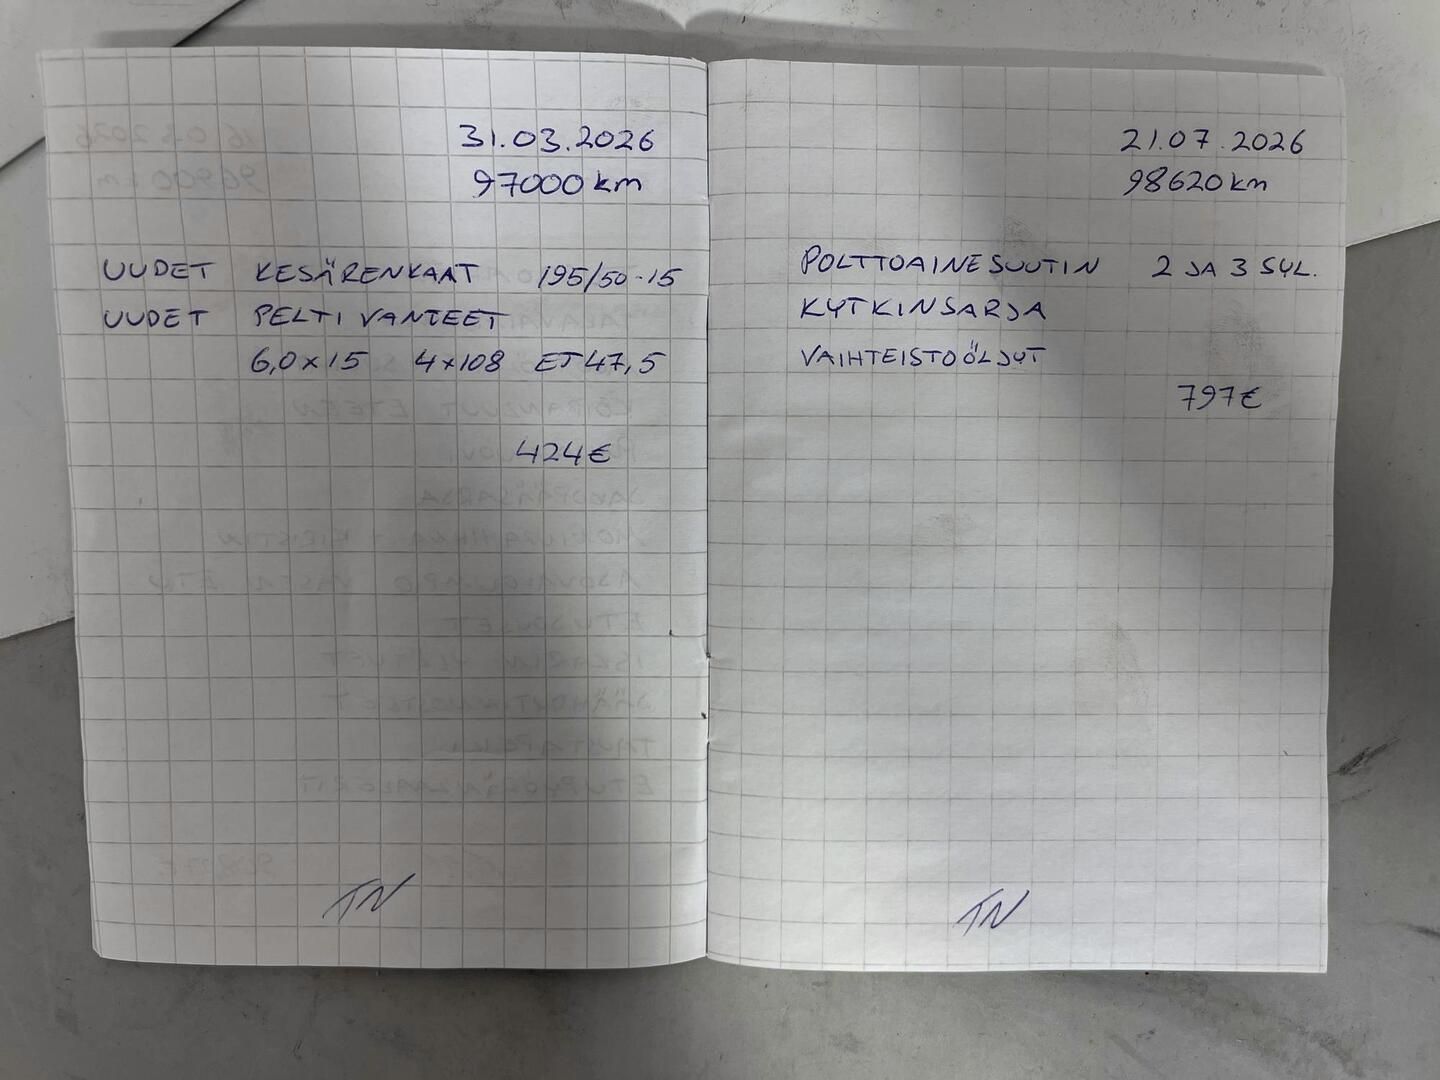 31.03.2026
97000 km
UUDET KESÄRENKAAT 195/50-15
UUDET PELTIVANTEET
6,0x15 4x108 ET47,5
424€
TN
21.07.2026
98620 km
POLTTOAINESUUTIN 2 JA 3 SYL.
KYTKINSARJA
VAIHTEISTOÖLJYT
797€
TN